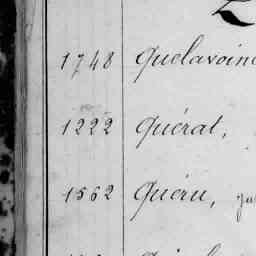 1748 Quelavoine
1222 Quérat,
1562 Quéru,